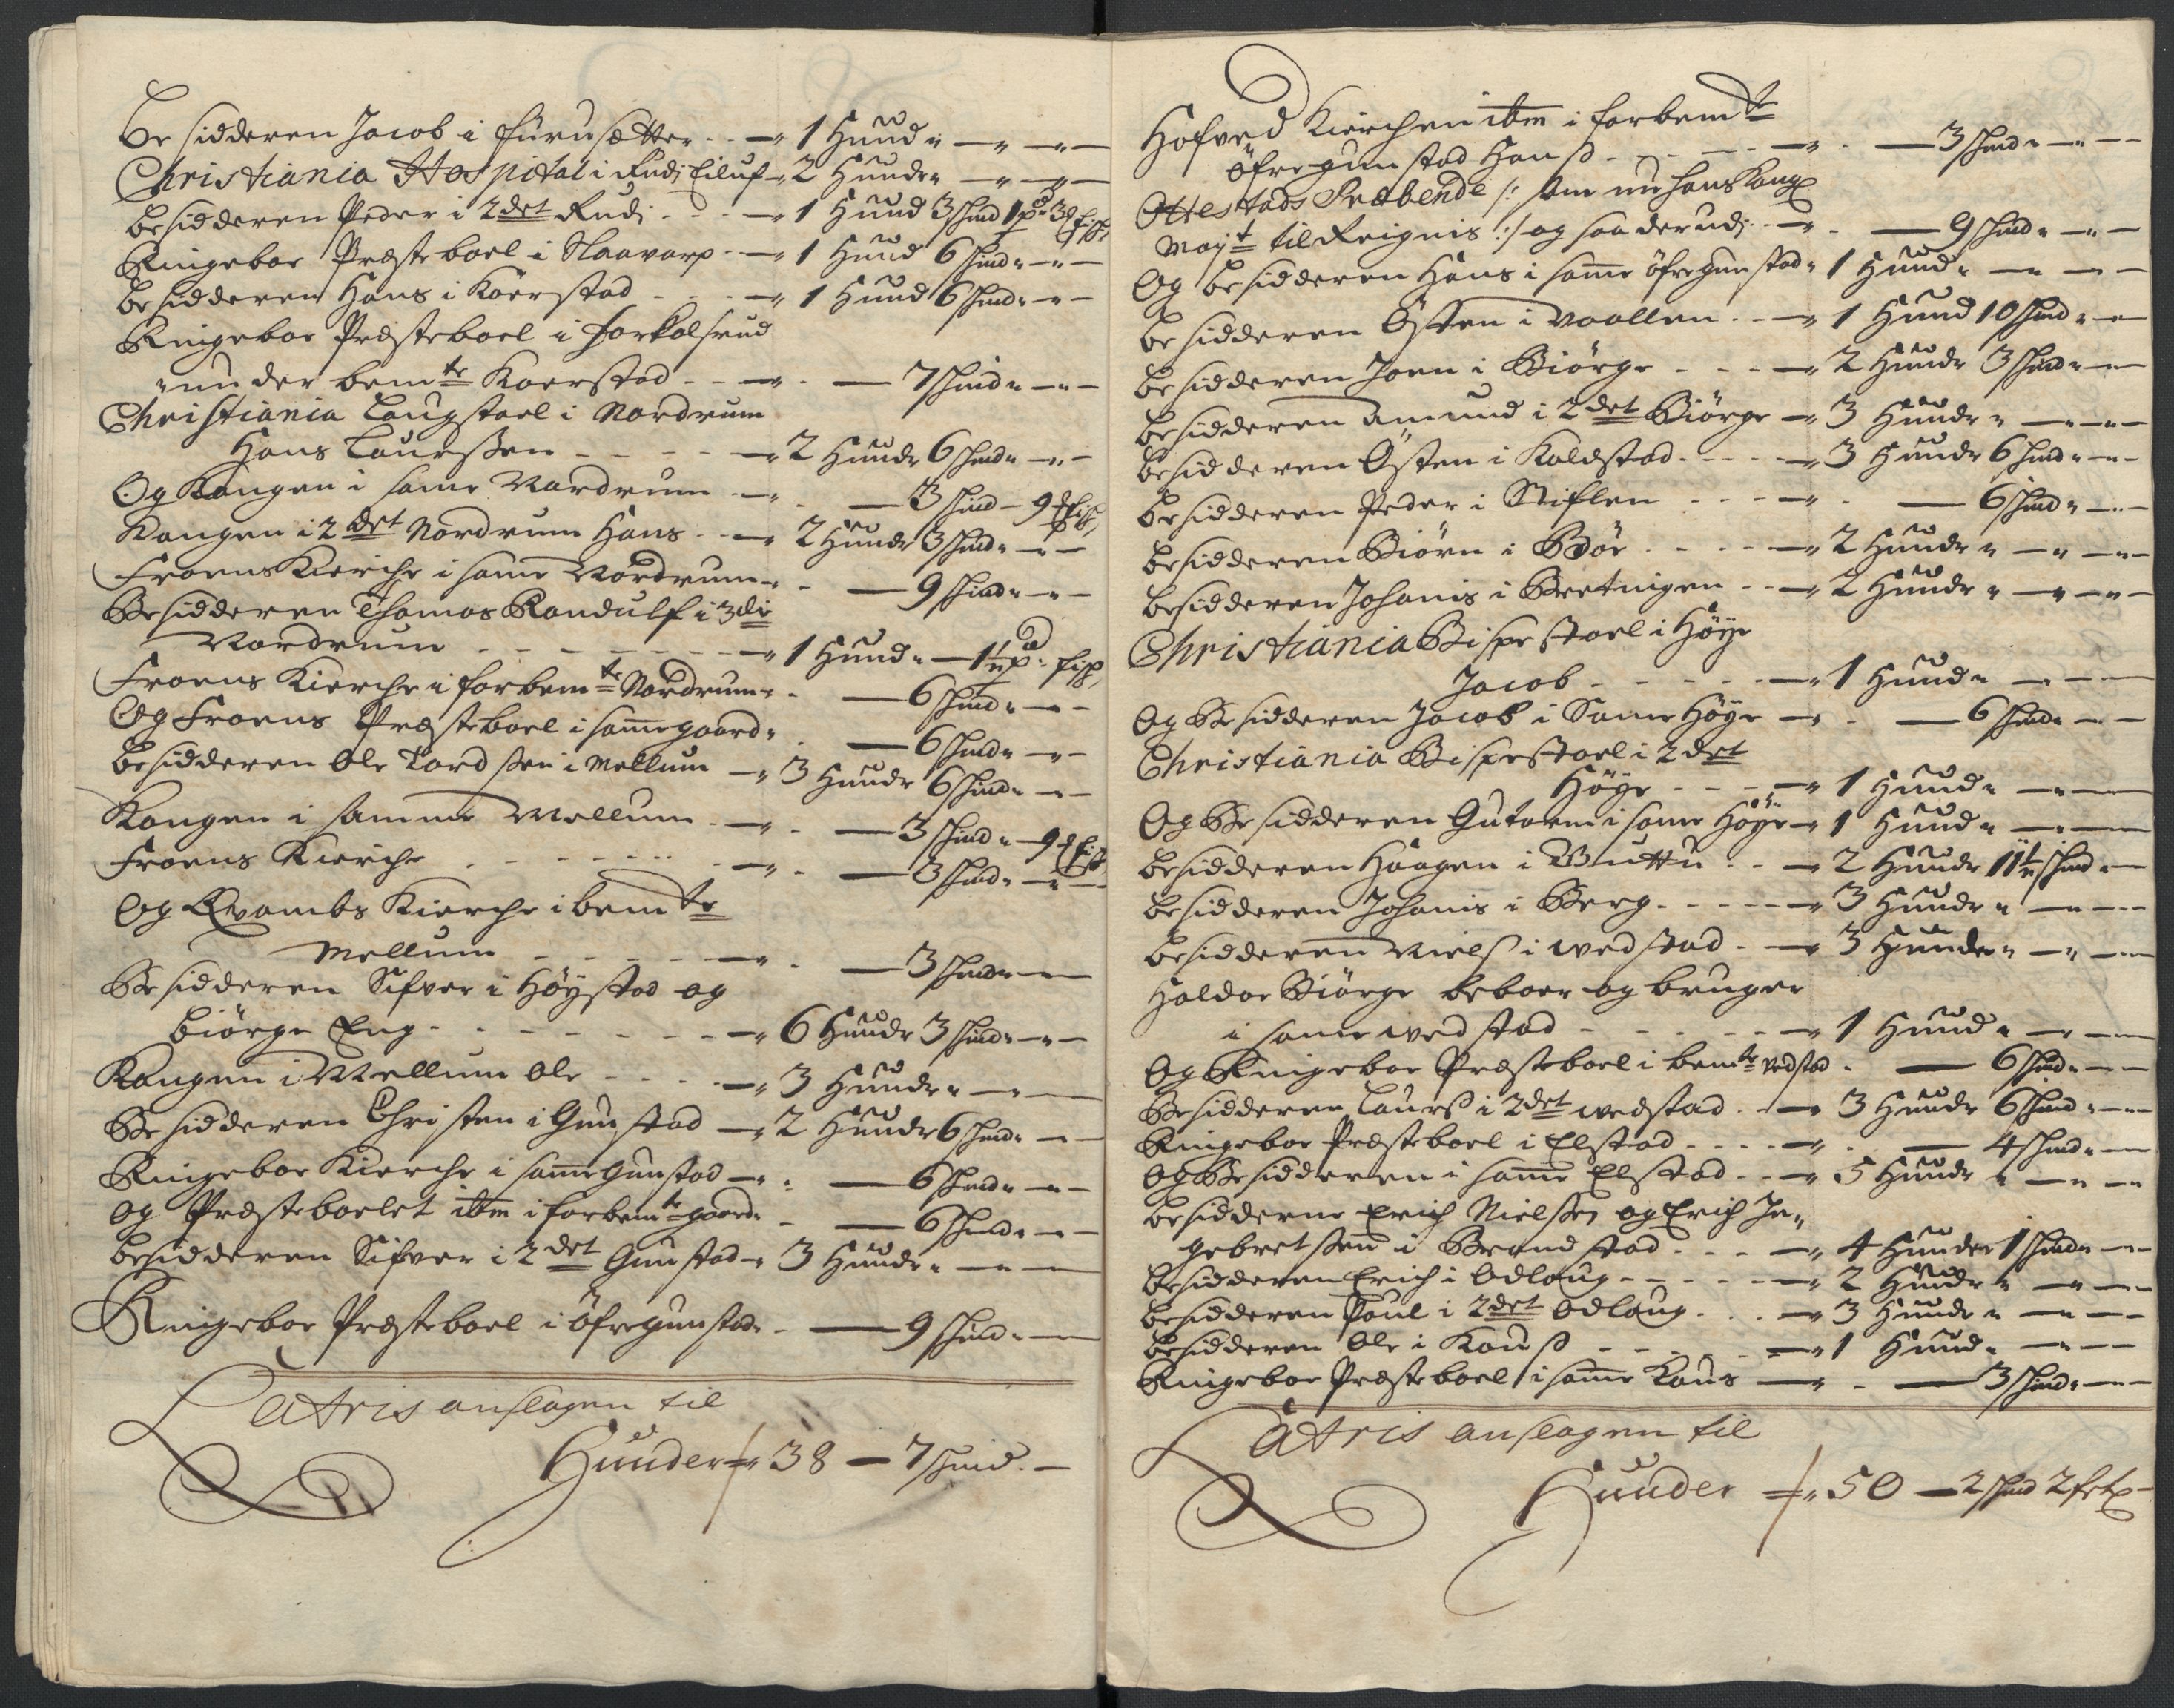 Besidderen Jacob i Furusætter - - — 1 Hund „ — „ —
Christiania Hospital i Rudj Eiluf - 2 Hunde „ — „ —
besidderen Peder i 2det Rudj - - — 1 Hund 3 skind 1 pd 3
Ringeboe Præsteboel i - — 1 Hund 6 skind „ —
besidderen Hans i Koerstad - - — 1 Hund 6 skind „ —
Ringeboe Præsteboel i
under bemte Koerstad - - — - — 7 skind „ —
Christiania Laugstoel i Nordrum
Hans Laurssen - - - - — 2 Hunde 6 skind „ —
Og Kongen i samme Nordrum - — - — 3 skind — 9
Kongen i 2det Nordrum Hans - - — 2 Hunde 3 skind „ —
Froens Kierche i samme Nordrum - - — 9 skind „ —
Besidderen Thomas Randulf i 3die
Nordrum - - - - - — 1 Hund „ — 1½ pd fisk
Froens Kierche i forbemte Nordrum - - — 6 skind „ —
Og Froens Præsteboel i samme gaard „ - — 6 skind „ —
besidderen Ole Tordssen i Mellum — 3 Hunde 6 skind „ —
Kongen i samme Mellum - — - — 3 skind „ — 9
Froens Kierche - - - - - — - — 3 skind „ —
Og Qvambs Kierche i bemte
Mellum - - - - - — - — 3 skind „ —
Besidderen Sifver i Høystad og
biørge Eng - - - - - — 6 Hunde 3 skind „ —
Kongen i Mellum Ole - - - — 3 Hunde „ — —
Besidderen Christen i Gunstad — 2 Hunde 6 skind „ —
Ringeboe Kierche i samme Gunstad — „ - — 6 skind „ —
og Præsteboelet itm i forbemte gaard „ - — 6 skind „ —
besidderen Sifver i 2det Gunstad - 3 Hunde „ — —
Ringeboe Præsteboel i øfregunstad „ - — 9 skind „ —
Latris anslagen til
Hunder — 38 — 7 skind —
Hofved Kierchen itm i forbemte
øfregunstad Hans - - - — - — 3 skind „ —
Ottestads Præbende /: som nu hans Kongl
Mayt til :/ og saa derudj - — - — 9 skind „ —
Og besidderen Hans i samme øfregunstad „ 1 Hund „ — —
besidderen Østen i Maallen - — 1 Hund 10 skind „ —
besidderen Joen i Biørge - - - — 2 Hunde 3 skind „ —
besidderen Amund i 2det Biørge — 3 Hunde „ — —
besidderen Østen i Koldstad - - - — 3 Hunde 6 skind „ —
besidderen Peder i Stiflen - - - — - — 6 skind „ —
besidderen Biørn i Bøe - - - — 2 Hunde „ — —
besidderen Johanis i Bretnigen - - — 2 Hunde „ — —
Christiania Bispestoel i Høye
Jacob - - - - — 1 Hund „ — —
Og Besidderen Jacob i Samme Høye — - — 6 skind „ —
Christiania Bispestoel i 2det
Høye - - - — 1 Hund „ — —
Og Besidderen Gutorm i samme Høye — 1 Hund „ — —
besidderen Haagen i - - — 2 Hunde 11½ skind „ —
besidderen Johanis i Berg - - - - — 3 Hunde „ — —
besidderen Niels i wedstad - — 3 Hunde „ — —
Haldor Biørge beboer og bruger
i samme wedstad - - - - — 1 Hund „ — —
Og Ringeboe Præsteboel i bemte vedstad - — 6 skind „ —
Besidderen Laurs i 2det wedstad - — 3 Hunde 6 skind „ —
Ringeboe Præsteboel i Elstad - - - — - — 4 skind „ —
Og Besidderen i samme Elstad - - — 5 Hunde „ — —
besidderne Erich Nielssen og Erich In-
gebretssen i Brandstad - - - — 4 Hunder 1 skind „ —
besidderen Erich i Odloug - - - - — 2 Hunde „ — —
besidderen Poul i 2det Odloug - - - — 3 Hunde „ — —
besidderen Ole i Kaus - - - - — 1 Hund „ — —
Ringeboe Præsteboel i samme Kaus — - — 3 skind „ —
Latris anslagen til
Hunder — 50 — 2 skind 2